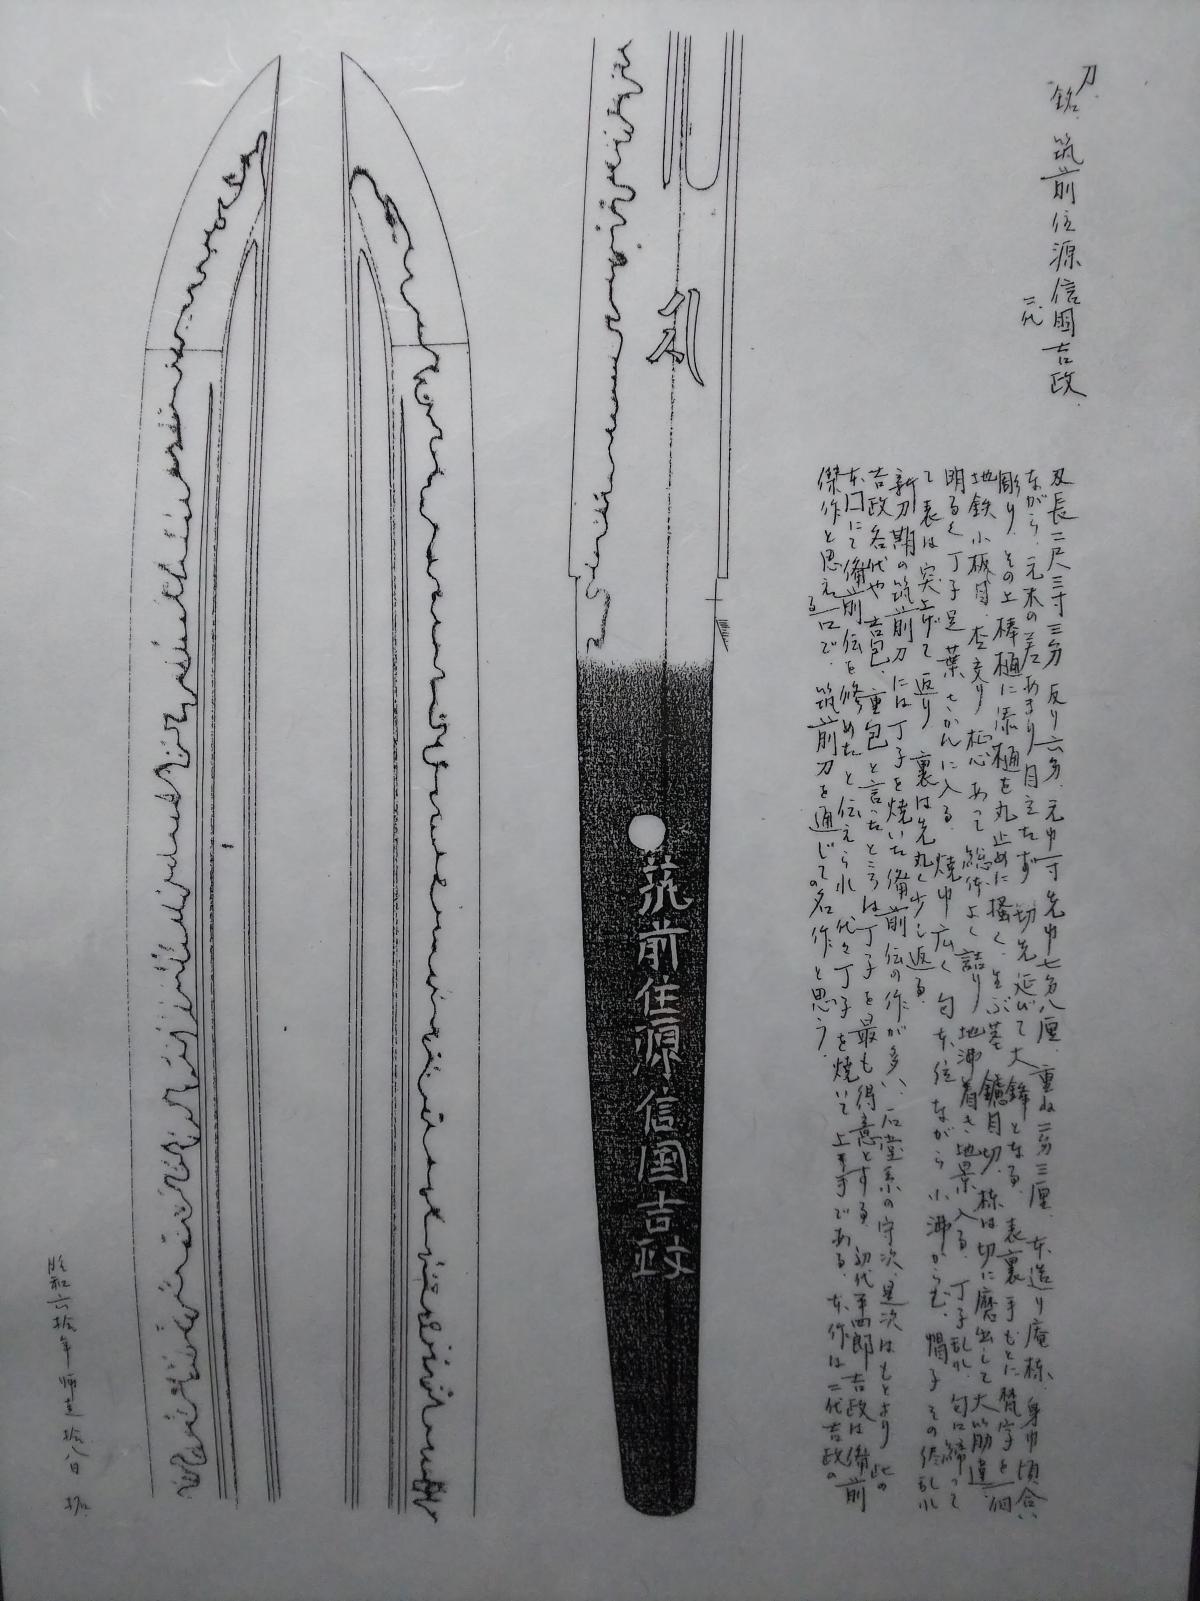 刀
銘 筑前住源信國吉政
二代
刄長二尺三寸三分 反り六分、元巾一寸先巾七分八厘、重ね二分三厘、本造り庵棟、身巾頃合い
ながら、元末の差あまり目立たず 切先延びて大鋒となる、表裏手もとに梵字を一個
彫り、その上棒樋に添樋を丸止めに掻く、生ぶ茎 鑢目切、棟は切に磨出して大筋違、
地鉄 小板目、杢交り 柾心あって総体よく詰り 地沸着き 地景入る、丁子乱れ、匂口締って
明るく丁子足 葉さかんに入る、焼巾広く 匂本位ながら 小沸からむ、帽子 その侭乱れ
て表は突上げて返り 裏は先丸く少し返る、
新刀期の筑前刀には丁子を焼いた備前伝の作が多い、石堂系の守次、是次はもとより 此の
吉政各代や 吉包、重包と言ったところは丁子を最も得意とする、初代平四郎吉政は備前
本口にて備前伝を修めたと伝えられ 代々丁子を焼いて上手である、本作は二代吉政の
傑作と思える一口で、筑前刀を通じての名作と思う、
筑前住源信國吉政
昭和六拾年師走拾八日